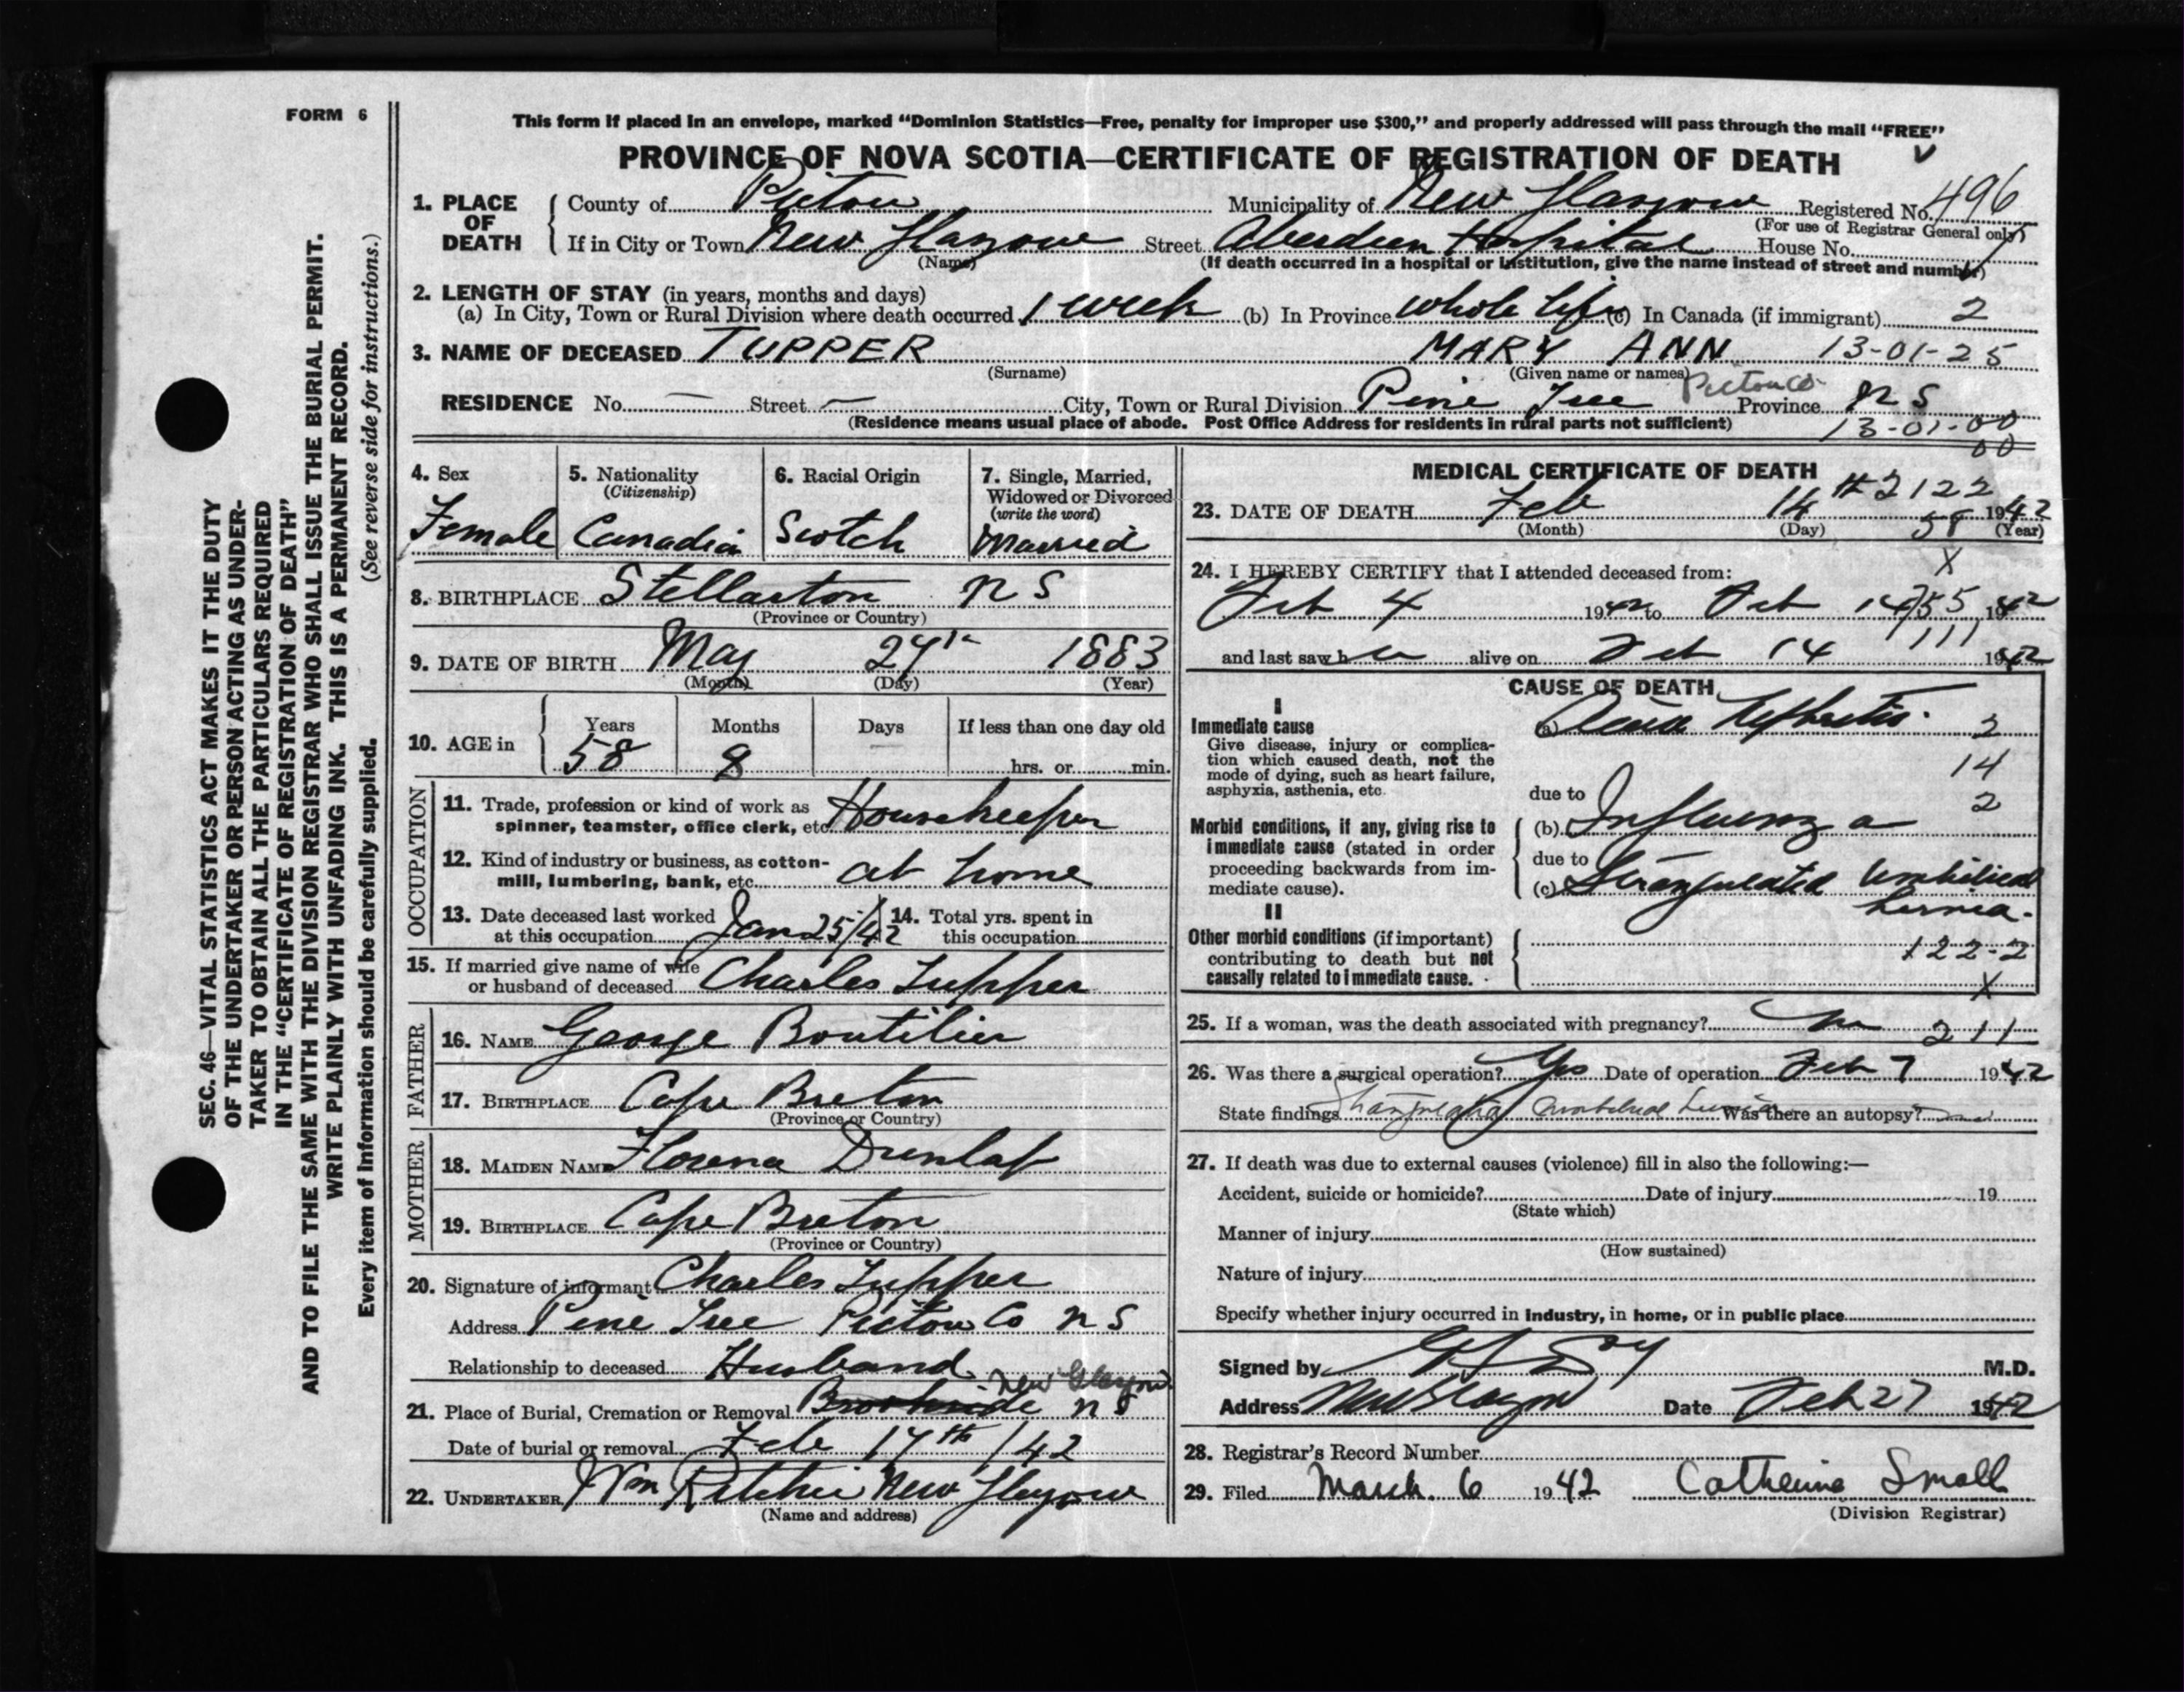 FORM 6
This form if placed in an envelope, marked “Dominion Statistics—Free, penalty for improper use $300,” and properly addressed will pass through the mail “FREE”
PROVINCE OF NOVA SCOTIA—CERTIFICATE OF REGISTRATION OF DEATH
1. PLACE OF DEATH County of Pictou Municipality of New Glasgow Registered No. 496
(For use of Registrar General only)
If in City or Town New Glasgow Street Aberdeen Hospital House No.
(Name) (If death occurred in a hospital or institution, give the name instead of street and number)
2. LENGTH OF STAY (in years, months and days)
(a) In City, Town or Rural Division where death occurred 1 week (b) In Province whole life (c) In Canada (if immigrant) 2
3. NAME OF DECEASED TUPPER MARY ANN 13-01-25
(Surname) (Given name or names)
RESIDENCE No. — Street — City, Town or Rural Division Pine Tree Pictou Co Province N S
(Residence means usual place of abode. Post Office Address for residents in rural parts not sufficient) 13-01-00
00
4. Sex Female
5. Nationality (Citizenship) Canadian
6. Racial Origin Scotch
7. Single, Married, Widowed or Divorced (write the word) Married
8. BIRTHPLACE Stellarton N S
(Province or Country)
9. DATE OF BIRTH May 24th 1883
(Month) (Day) (Year)
10. AGE in Years 58 Months 8 Days — If less than one day old hrs. or min.
OCCUPATION
11. Trade, profession or kind of work as spinner, teamster, office clerk, etc. Housekeeper
12. Kind of industry or business, as cotton-mill, lumbering, bank, etc. at home
13. Date deceased last worked at this occupation Jan 25/42 14. Total yrs. spent in this occupation
15. If married give name of wife or husband of deceased Charles Tupper
FATHER
16. NAME George Boutilier
17. BIRTHPLACE Cape Breton
(Province or Country)
MOTHER
18. MAIDEN NAME Florena Dunlap
19. BIRTHPLACE Cape Breton
(Province or Country)
20. Signature of informant Charles Tupper
Address Pine Tree Pictou Co N S
Relationship to deceased Husband
New Glasgow
21. Place of Burial, Cremation or Removal Brookside N S
Date of burial or removal Feb 17th /42
22. UNDERTAKER Wm Ritchie New Glasgow
(Name and address)
MEDICAL CERTIFICATE OF DEATH
# 2122
23. DATE OF DEATH Feb 14 1942
(Month) (Day) 58 (Year)
X
24. I HEREBY CERTIFY that I attended deceased from:
Feb 4 1942 to Feb 14 1942
1111
and last saw her alive on Feb 14 1942
CAUSE OF DEATH
I
Immediate cause
Give disease, injury or complication which caused death, not the mode of dying, such as heart failure, asphyxia, asthenia, etc.
(a) Nephritis. 2
14
due to 2
(b) Influenza
Morbid conditions, if any, giving rise to immediate cause (stated in order proceeding backwards from immediate cause).
due to
(c) Strangulated Umbilical hernia.
II
Other morbid conditions (if important) contributing to death but not causally related to immediate cause.
122-2
X
25. If a woman, was the death associated with pregnancy? no 211
26. Was there a surgical operation? Yes Date of operation Feb 7 1942
State findings Strangulated umbilical hernia Was there an autopsy? no
27. If death was due to external causes (violence) fill in also the following:—
Accident, suicide or homicide? Date of injury 19
(State which)
Manner of injury
(How sustained)
Nature of injury
Specify whether injury occurred in industry, in home, or in public place
Signed by M.D.
Address New Glasgow Date Feb 27 1942
28. Registrar's Record Number
29. Filed March 6 1942 Catherine Small
(Division Registrar)
SEC. 46—VITAL STATISTICS ACT MAKES IT THE DUTY
OF THE UNDERTAKER OR PERSON ACTING AS UNDER-
TAKER TO OBTAIN ALL THE PARTICULARS REQUIRED
IN THE “CERTIFICATE OF REGISTRATION OF DEATH”
AND TO FILE THE SAME WITH THE DIVISION REGISTRAR WHO SHALL ISSUE THE BURIAL PERMIT.
WRITE PLAINLY WITH UNFADING INK. THIS IS A PERMANENT RECORD.
Every item of information should be carefully supplied. (See reverse side for instructions.)